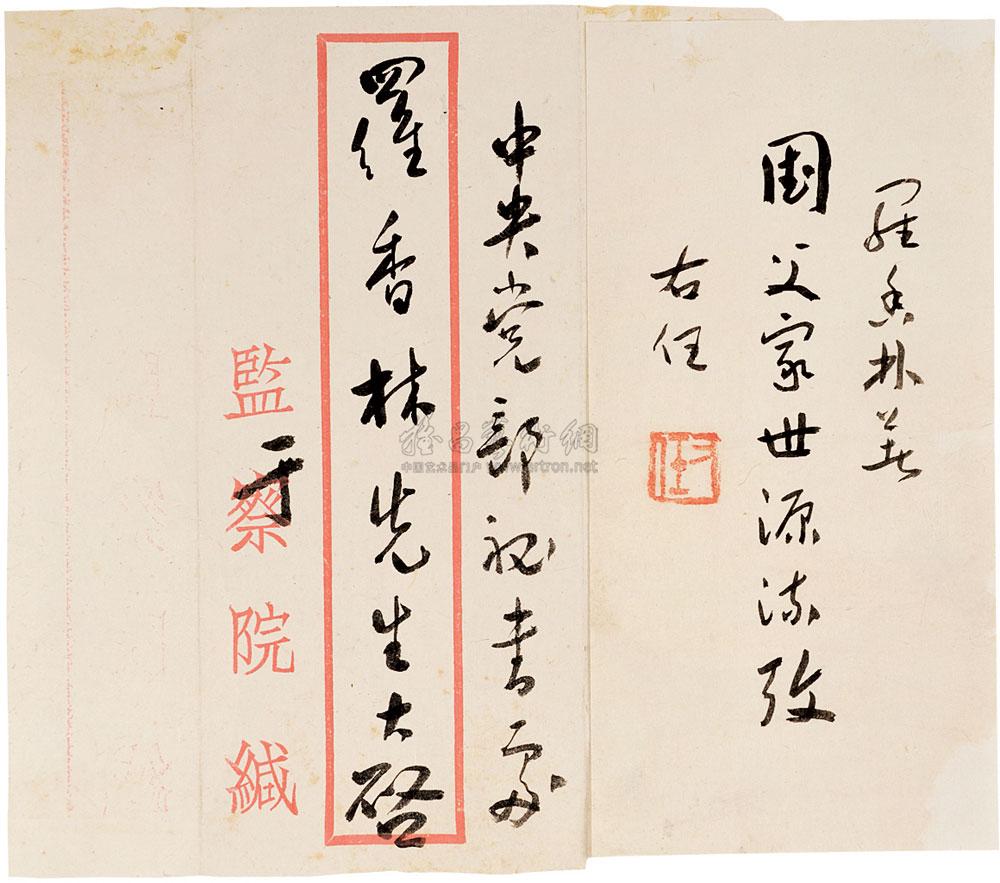 羅香林著
國父家世源流攷
右任
右任
中央党部秘書處
羅香林先生大啓
監察院緘
于
雅昌藝術網
中国艺术品门户 www.artron.net